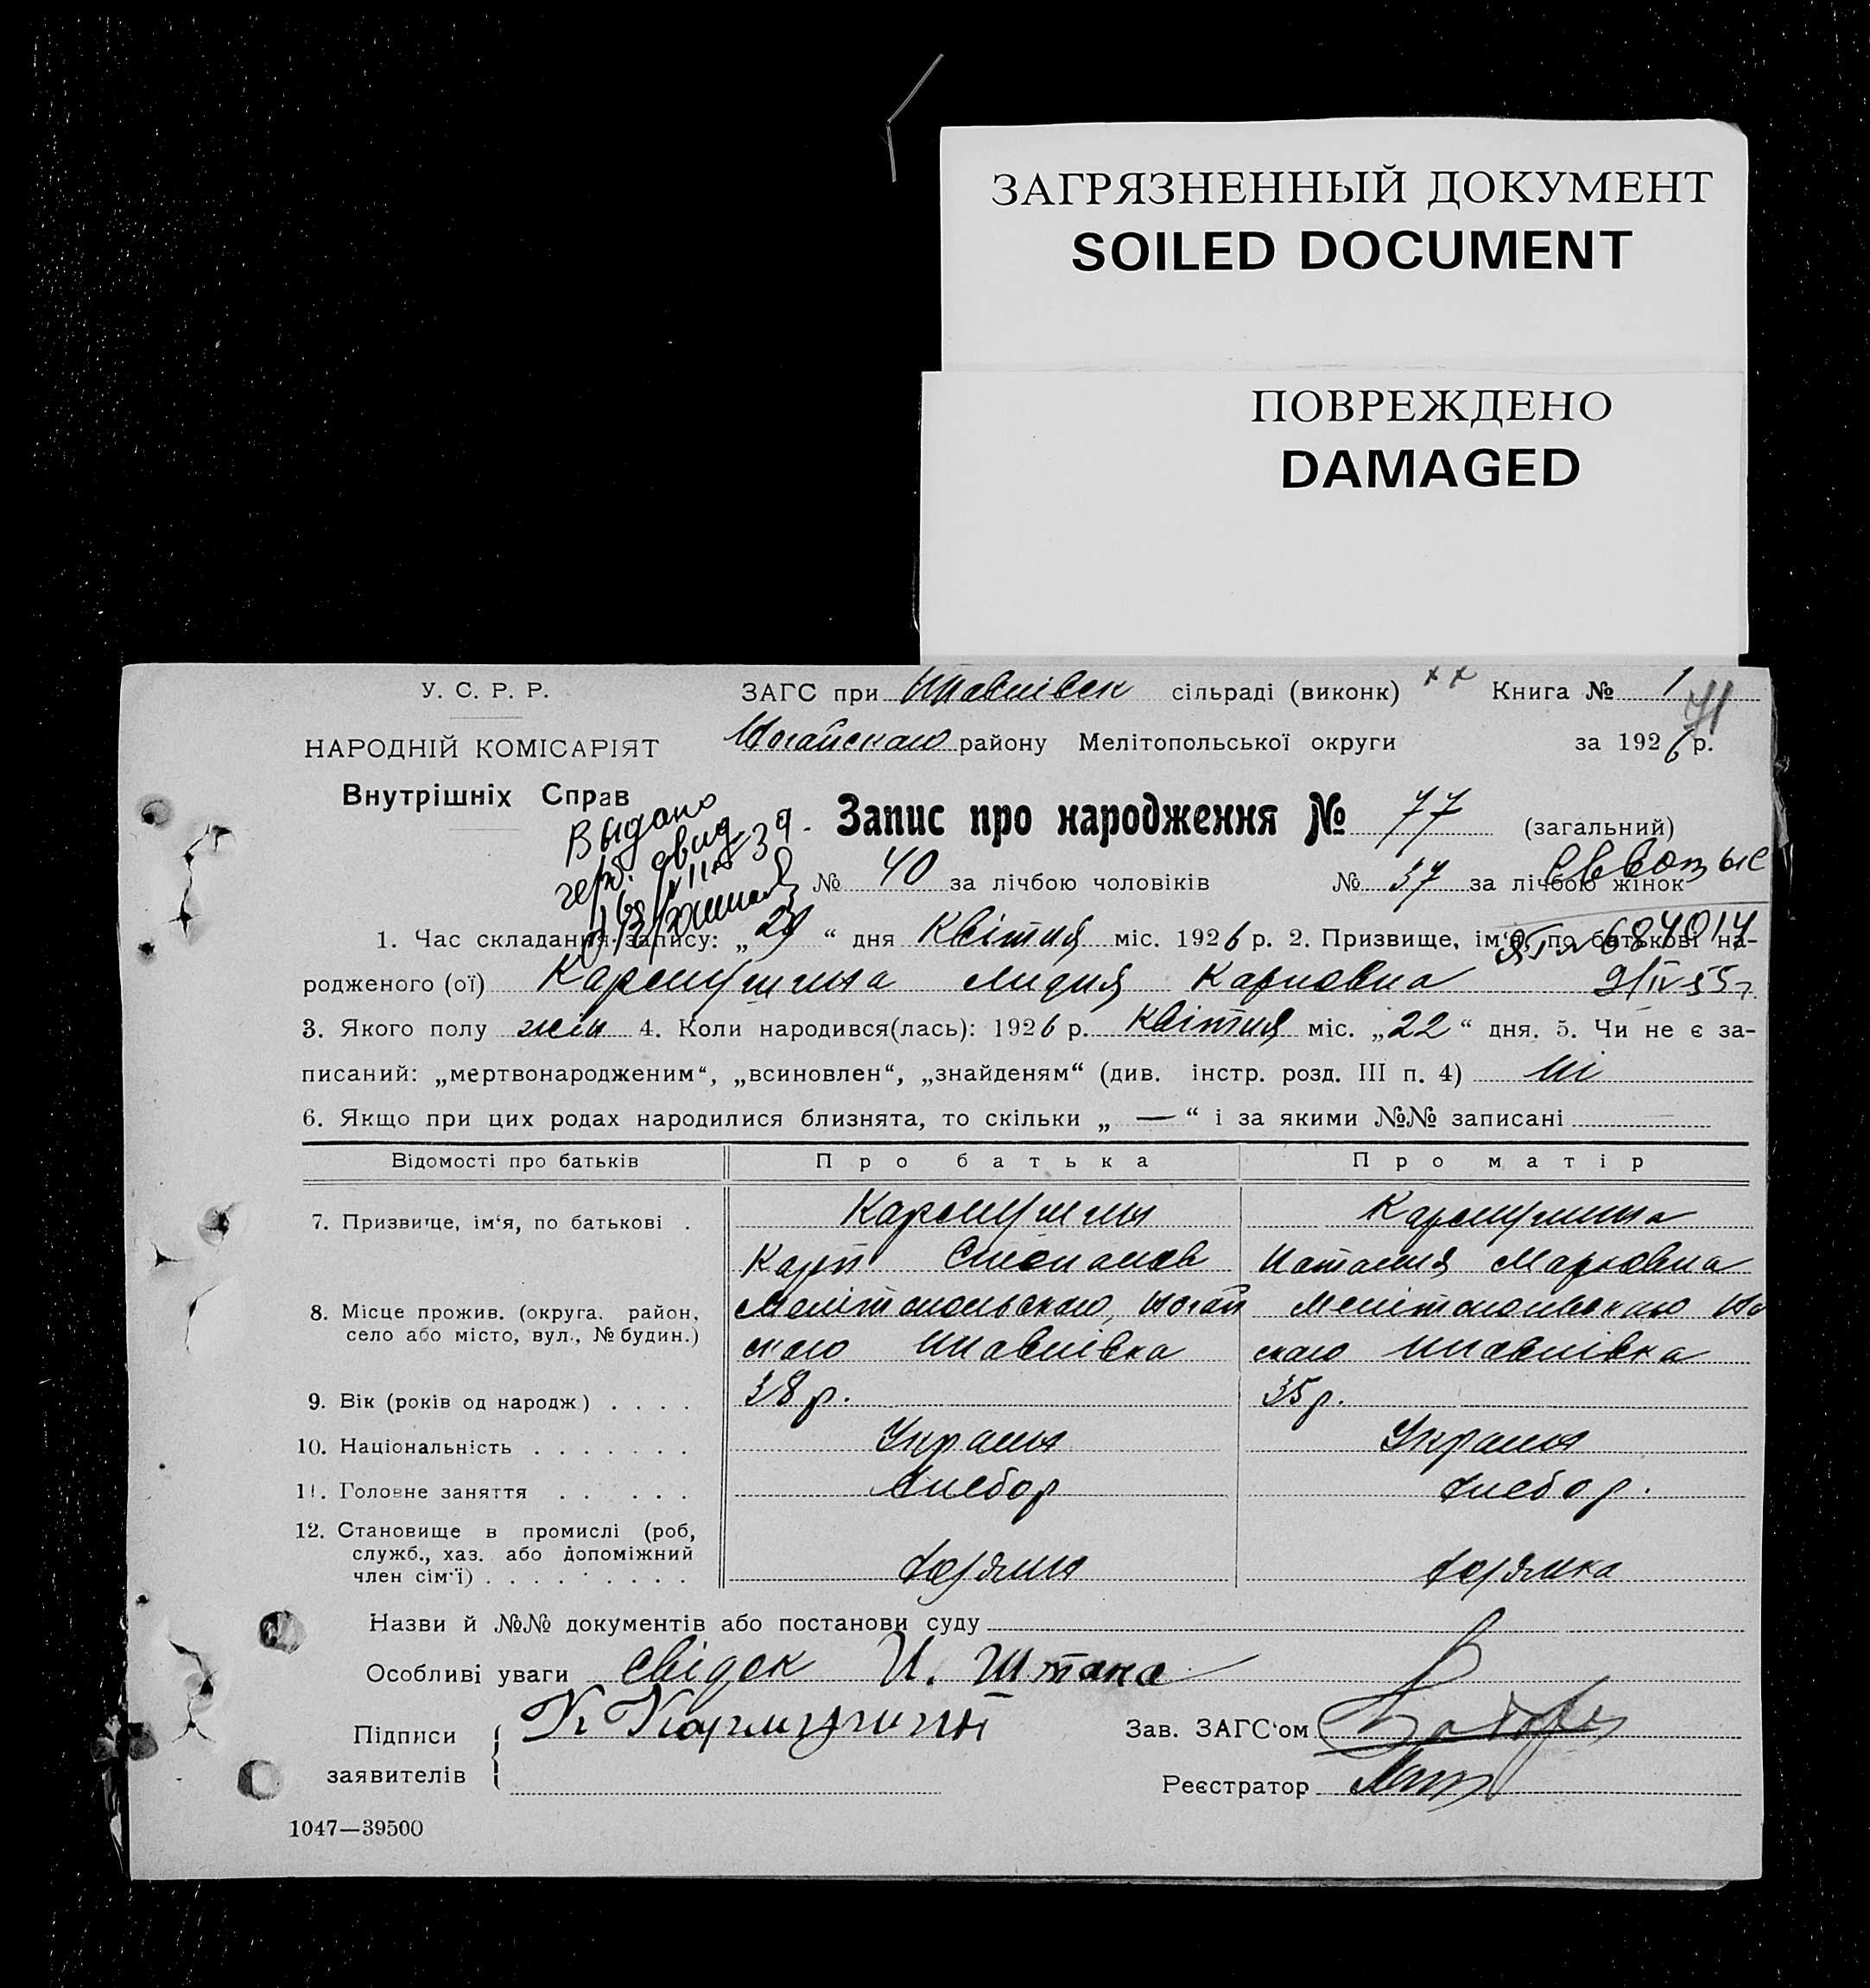 ЗАГРЯЗНЕННЫЙ ДОКУМЕНТ
SOILED DOCUMENT
ПОВРЕЖДЕНО
DAMAGED
У. С. Р. Р.
НАРОДНІЙ КОМІСАРІЯТ
Внутрішніх Справ
ЗАГС при Шавлівск сільраді (виконк) Книга № 1
71
Ногайского району Мелітопольської округи за 1926 р.
Выдано
герб. свид
Запис про народження № 77 (загальний)
№ 40 за лічбою чоловіків № 37 за лічбою жінок
1. Час складання запису: „29“ дня Квітня міс. 1926 р. 2. Призвище, ім'я, по батькові на-
№ 684014
родженого (ої) Кармушина Лидия Карповна
9/IV 55г.
3. Якого полу жін 4. Коли народився(лась): 1926 р. Квітня міс. „22“ дня. 5. Чи не є за-
писаний: „мертвонародженим“, „всиновлен“, „знайденям“ (див. інстр. розд. III п. 4) Ні
6. Якщо при цих родах народилися близнята, то скільки „ — “ і за якими №№ записані —
Відомості про батьків Про батька Про матір
7. Призвище, ім‘я, по батькові . Кармушин Кармушина
Карп Степанов Наталия Марковна
8. Місце прожив. (округа. район, Мелітопольского, Ногай Мелітопольского Но
село або місто, вул., № будин.) ского Шавлівка ского Шавлівка
9. Вік (років од народж) . . . . 38 р. 35 р.
10. Національність . . . . . . . Украин Украин
11. Головне заняття . . . . . . Хлебор Хлебор.
12. Становище в промислі (роб,
служб., хаз. або допоміжний
член сім‘ї) . . . . . . . . . Хозяин Хозяйка
Назви й №№ документів або постанови суду
Особливі уваги Свідок И. Штана
Підписи К Кармушин Зав. ЗАГС‘ом
заявителів Реєстратор
1047—39500